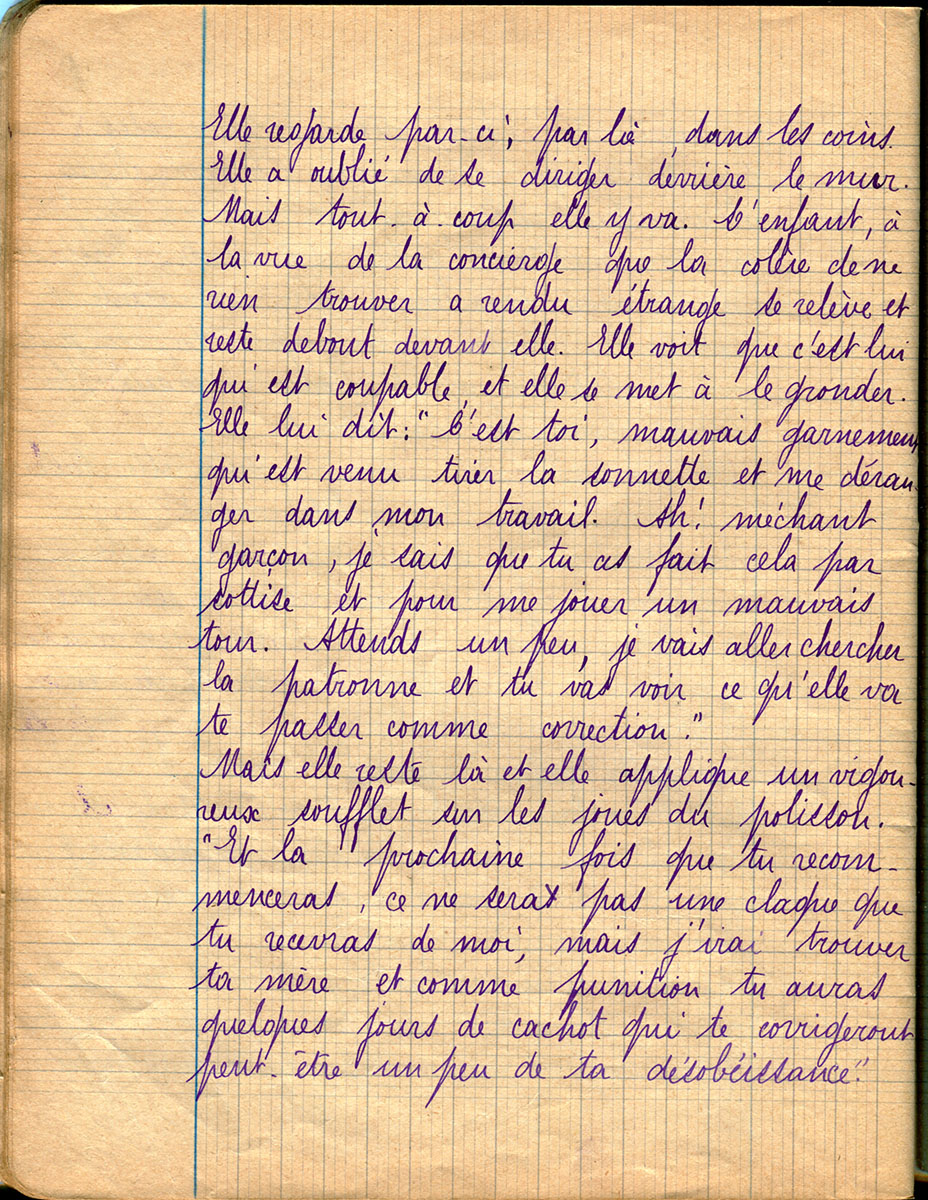 Elle regarde par-ci, par là, dans les coins.
Elle a oublié de se diriger derrière le mur.
Mais tout-à-coup elle y va. L'enfant, à
la vue de la concierge que la colère de ne
rien trouver a rendu étrange se relève et
reste debout devant elle. Elle voit que c'est lui
qui est coupable, et elle se met à le gronder.
Elle lui dit : "C'est toi, mauvais garnement
qui est venu tirer la sonnette et me déran-
ger dans mon travail. Ah! méchant
garçon, je sais que tu as fait cela par
sottise et pour me jouer un mauvais
tour. Attends un peu, je vais aller chercher
la patronne et tu vas voir ce qu'elle va
te passer comme correction".
Mais elle reste là et elle applique un vigou-
reux soufflet sur les joues du polisson.
"Et la prochaine fois que tu recom-
menceras, ce ne sera pas une claque que
tu recevras de moi, mais j'irai trouver
ta mère et comme punition tu auras
quelques jours de cachot qui te corrigeront
peut-être un peu de ta désobéissance".